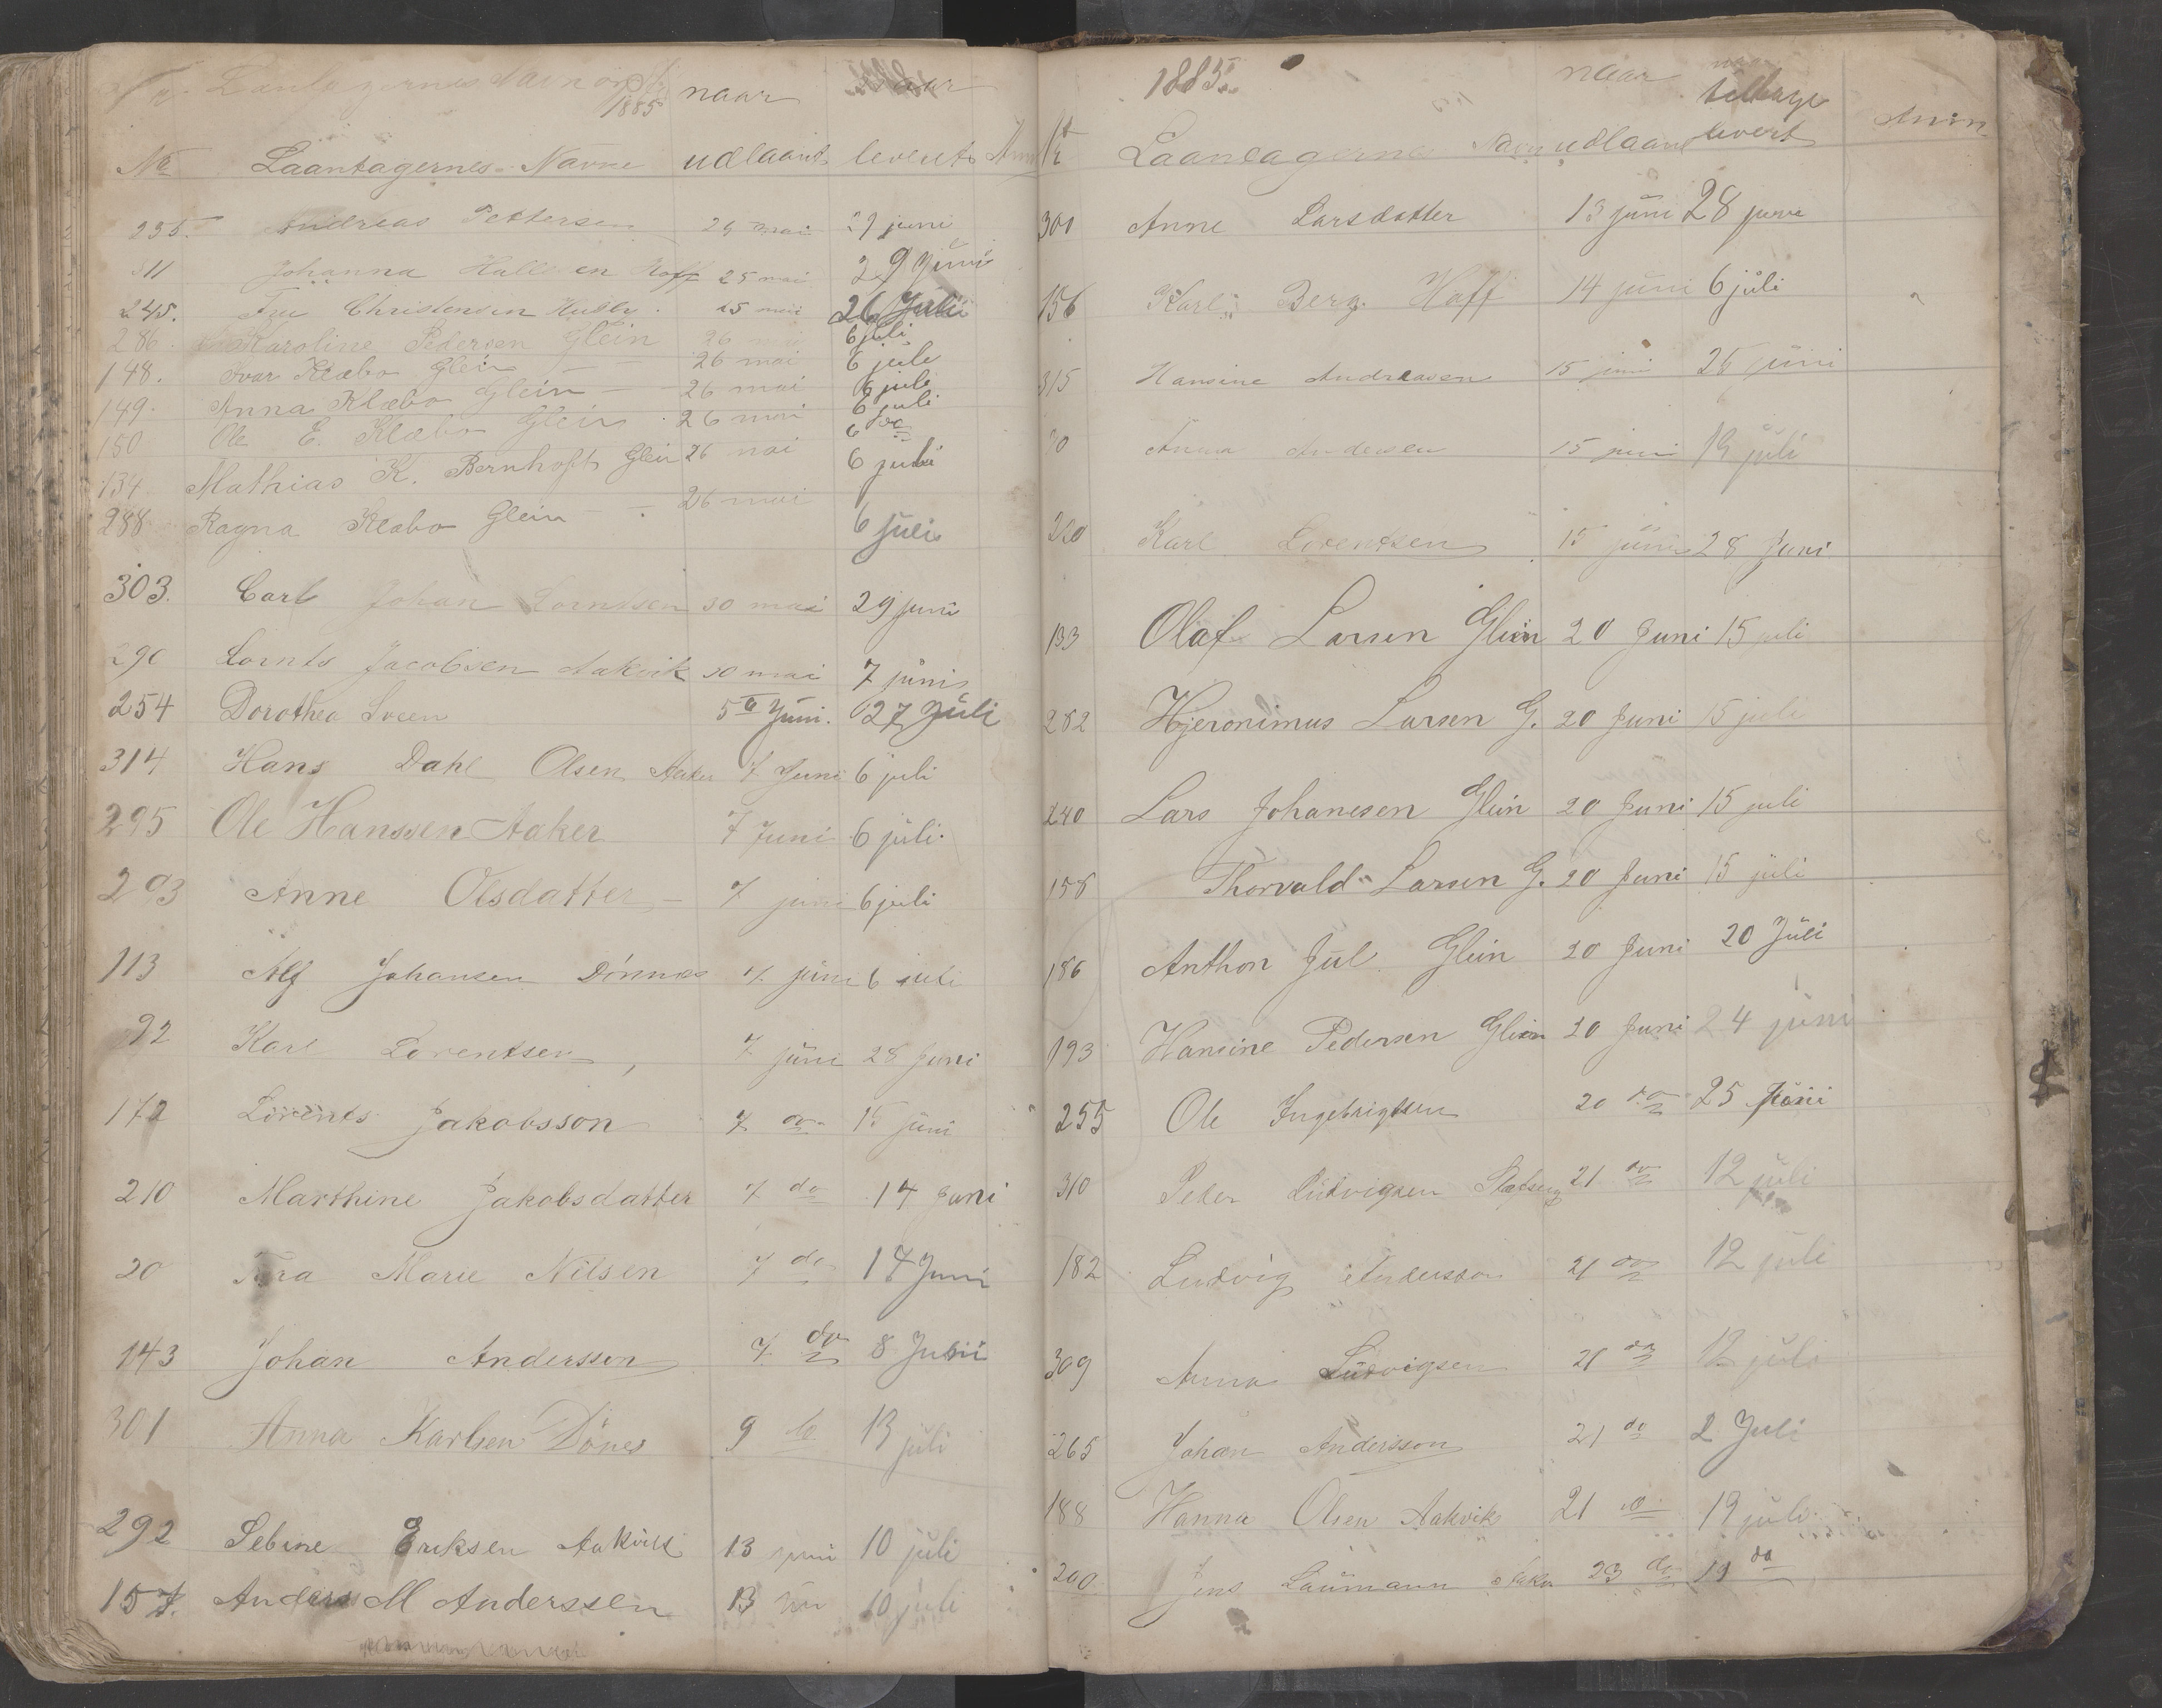 1885 naar
No Laantagernes Navne udlaant levert Anm
235. Andreas Pettersen 24 mai 27 juni
311 Johanna Hallesen Hoff 25 mai 29 juni
245. Fru Christensen Husby. 25 mai 26 Juli
286. Karoline Pedersen Glein 26 mai 6 juli
148. Ivar Klæbo Glein 26 mai 6 juli
149. Anna Klæbo Glein 26 mai 6 juli
150 Ole E. Klæbo Glein 26 mai 6 do
134 Mathias K. Bernhoft Glein 26 mai 6 juli
288 Ragna Klæbo Glein 26 mai 6 juli
303. Carl Johan Lorntsen 30 mai 29 juni
290 Lornts Jacobsen Aakvik 30 mai 7 juni
254 Dorothea Sveen 5te Juni. 27 Juli
314 Hans Dahl Olsen Aaker 7 Juni 6 juli
295 Ole Hanssen Aaker 7 Juni 6 juli.
293 Anne Olsdatter 7 juni 6 juli
113 Alf Johansen Dönnæs 7 juni 6 juli
92 Karl Lorentsen, 7 juni 28 Juni
172 Lorents Jakobsson 7 do 15 juni
210 Marthine Jakobsdatter 7 do 14 Juni
20 Tora Marie Nilsen 7 do 14 Juni
143 Johan Andersson 7 do 8 Juni
301 Anna Karlsen Dönes 9 do 13 juli
292 Sebine Eriksen Aakvik 13 juni 10 juli
157. Anders M Anderssen 13 juni 10 juli
1885. naar naar tilbage
Nr Laantagerne Navn udlaant levert Anm
300 Anne Larsdatter 13 juni 28 juni
156 Karl Berg. Hoff 14 juni 6 juli
315 Hansine Andreasen 15 juni 26 juni
Anna Andersen 15 juni 19 juli
220 Karl Lorentsen 15 juni 28 Juni
133 Olaf Larsen Glein 20 Juni 15 juli
282 Hjeronimus Larsen G. 20 Juni 15 juli
240 Lars Johanesen Glein 20 Juni 15 juli
158 Thorvald Larsen G. 20 Juni 15 juli
186 Anthon Jul. Glein 20 Juni 20 Juli
193 Hansine Pedersen Glein 20 Juni 24 juni
255 Ole Ingebrigtsen 20 do 25 Juni
310 Peder Ludvigsen 21 do 12 juli
182 Ludvig Andersson 21 do 12 juli
309 Anna Ludvigsen 21 do 12 juli
265 Johan Andersson 21 do 2 Juli
188 Hanna Olsen Aakvik 21 do 19 juli
200 Jens Laumann Aaker 23 do 19 do